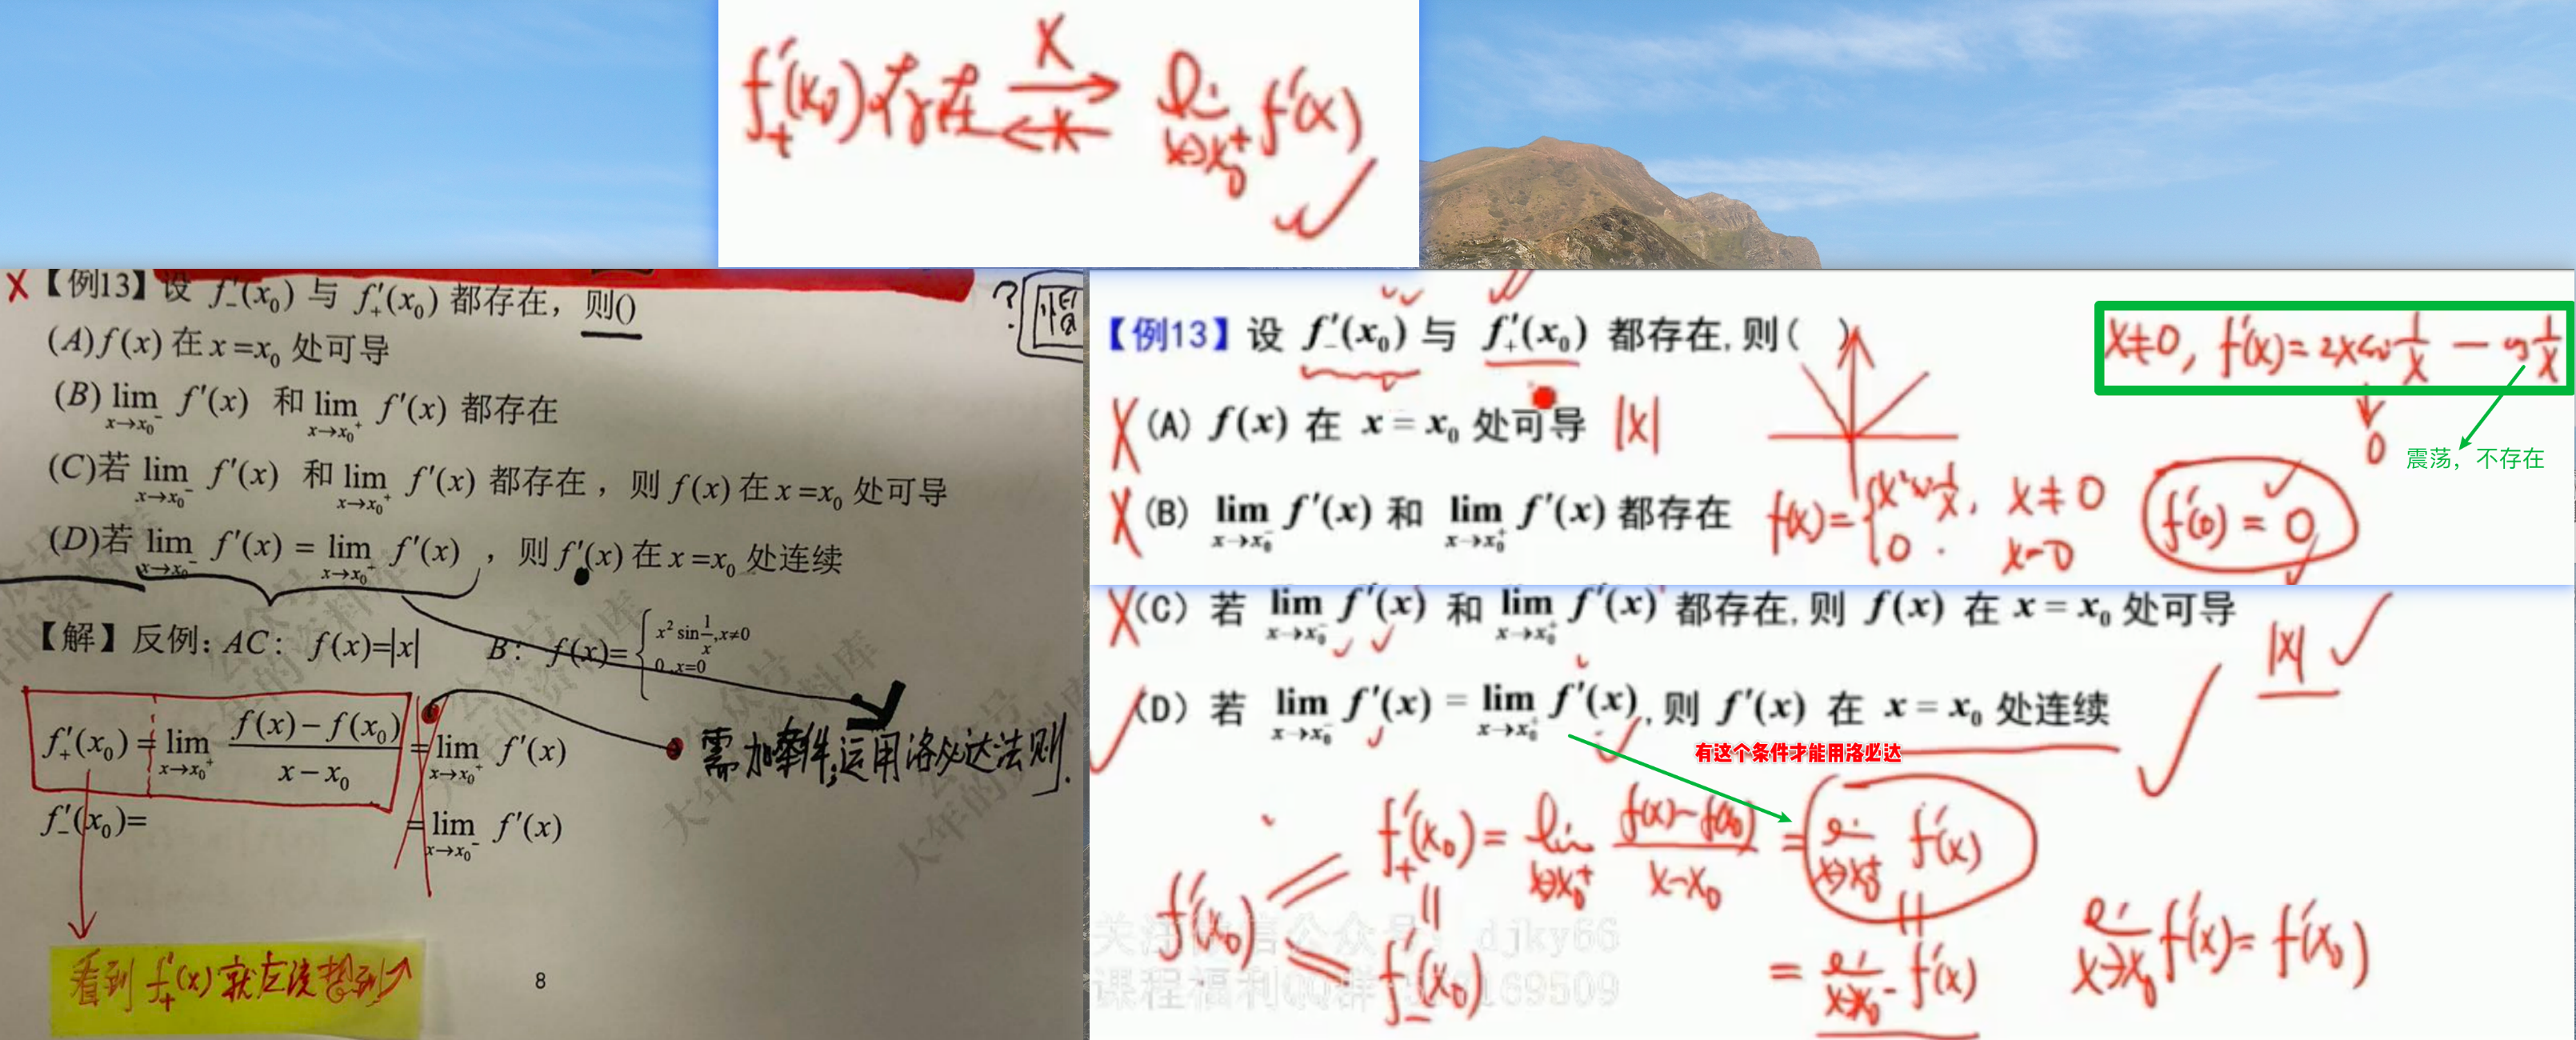 f'₊(x₀)存在 ⇄ lim x→x₀⁺ f'(x)
X
X
X【例13】设 f'₋(x₀) 与 f'₊(x₀) 都存在，则()
(A) f(x) 在 x=x₀ 处可导
(B) lim x→x₀⁻ f'(x) 和 lim x→x₀⁺ f'(x) 都存在
(C)若 lim x→x₀⁻ f'(x) 和 lim x→x₀⁺ f'(x) 都存在，则 f(x) 在 x=x₀ 处可导
(D)若 lim x→x₀⁻ f'(x) = lim x→x₀⁻ f'(x)，则 f'(x) 在 x=x₀ 处连续
【解】反例：AC： f(x)=|x| B： f(x)={x² sin 1/x, x≠0
0 ,x=0
f'₊(x₀) = lim x→x₀⁺ (f(x)−f(x₀))/(x−x₀) = lim x→x₀⁺ f'(x)
需加条件,运用洛必达法则.
f'₋(x₀)= = lim x→x₀⁻ f'(x)
看到 f'₊(x) 就应该想到↗
8
【例13】设 f'₋(x₀) 与 f'₊(x₀) 都存在,则( )
X (A) f(x) 在 x = x₀ 处可导 |x|
X (B) lim x→x₀⁻ f'(x) 和 lim x→x₀⁺ f'(x) 都存在
f(x)={x² sin 1/x, x≠0
0. x=0
f'(0) = 0
x≠0, f'(x)= 2x sin 1/x − cos 1/x
0
震荡，不存在
X (C) 若 lim x→x₀⁻ f'(x) 和 lim x→x₀⁺ f'(x) 都存在,则 f(x) 在 x = x₀ 处可导 |x|
(D) 若 lim x→x₀⁻ f'(x) = lim x→x₀⁺ f'(x),则 f'(x) 在 x = x₀ 处连续
有这个条件才能用洛必达
f'₊(x₀) = lim x→x₀⁺ (f(x)−f(x₀))/(x−x₀) = lim x→x₀⁺ f'(x)
f'(x₀)
f'₋(x₀) = lim x→x₀⁻ f'(x)
lim x→x₀ f'(x) = f'(x₀)